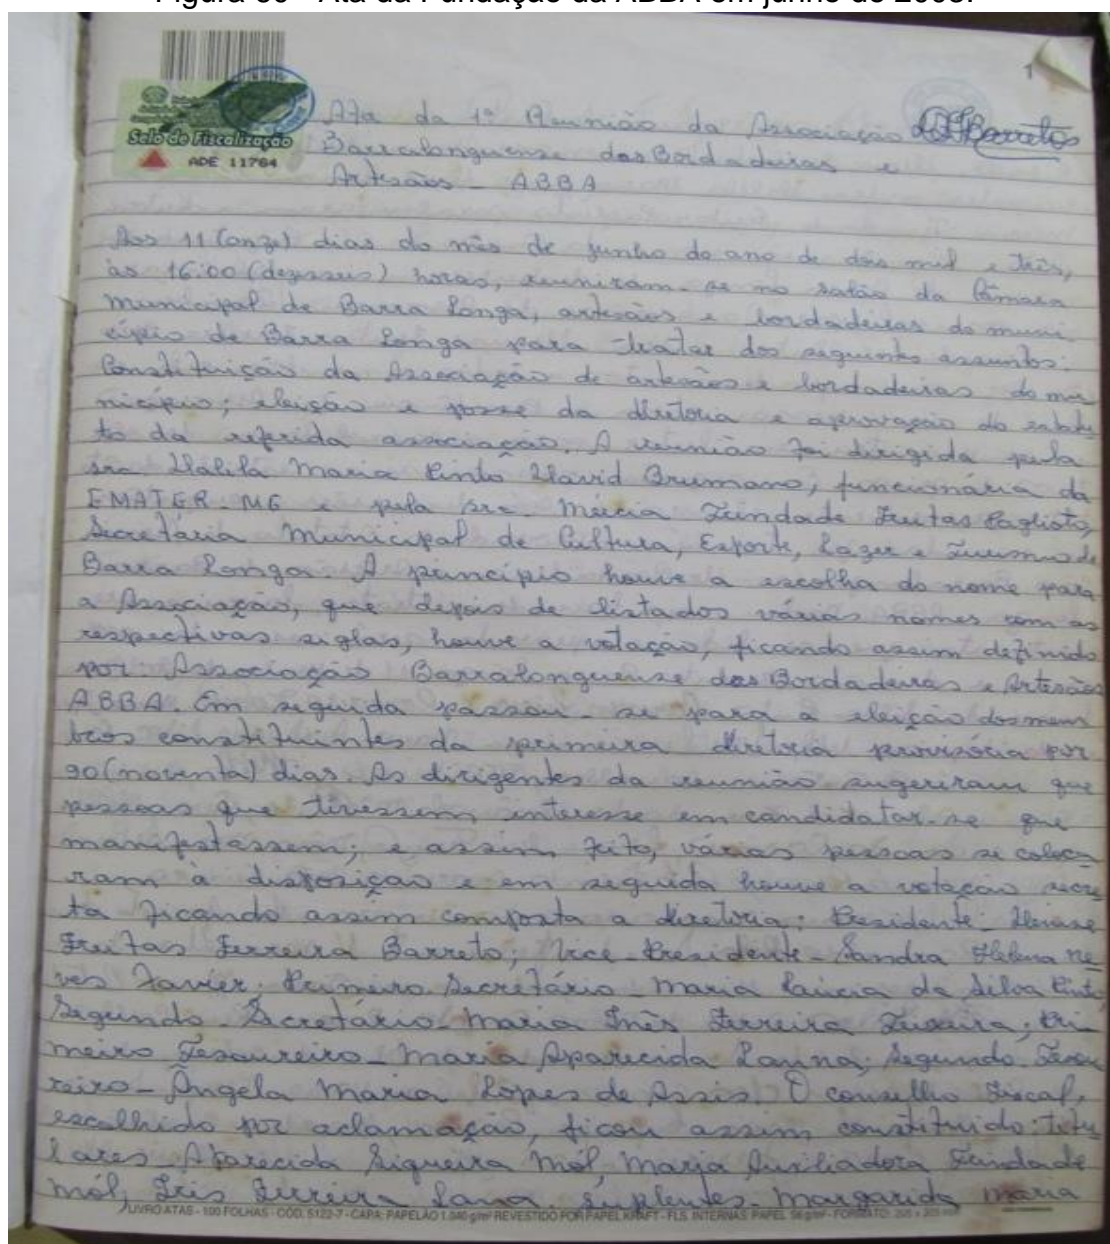 Figura 30 - Ata da Fundação da ABBA em junho de 2003.
1
Selo de Fiscalização
ADE 11764
Ata da 1ª Reunião da Associação
Barralonguense das Bordadeiras e
Artesãos - ABBA
Aos 11 (onze) dias do mês de junho do ano de dois mil e três,
às 16:00 (dezesseis) horas, reuniram-se no salão da Câmara
Municipal de Barra Longa, artesãos e bordadeiras do muni
cípio de Barra Longa para tratar dos seguintes assuntos:
Constituição da Associação de artesãos e bordadeiras do mu
nicípio; eleição e posse da diretoria e aprovação do estatu
to da referida associação. A reunião foi dirigida pela
sra Maria Pinto David Brumano, funcionária da
EMATER-MG e pela sra. Mércia Trindade Freitas
Secretária Municipal de Cultura, Esporte, Lazer e Turismo de
Barra Longa. A princípio houve a escolha do nome para
a Associação, que depois de listados vários nomes com as
respectivas siglas, houve a votação, ficando assim definido
por Associação Barralonguense das Bordadeiras e Artesãos
ABBA. Em seguida passou-se para a eleição dos mem
bros constituintes da primeira diretoria provisória por
90 (noventa) dias. As dirigentes da reunião sugeriram que
pessoas que tivessem interesse em candidatar-se que
manifestassem; e assim feito, várias pessoas se coloca
ram à disposição e em seguida houve a votação secre
ta ficando assim composta a diretoria: Presidente -
Freitas Ferreira Barreto; Vice-Presidente - Sandra Helena Ne
ves Xavier; Primeiro Secretário - Maria da Silva Pinto;
Segundo - Secretário - Maria Inês Ferreira Teixeira; Pri
meiro Tesoureiro - Maria Aparecida Lanna; Segundo Tesou
reiro - Ângela Maria Lopes de Assis. O conselho Fiscal,
escolhido por aclamação, ficou assim constituído: titu
lares - Aparecida Siqueira Mól, Maria Auxiliadora Trindade
Mól, Ferreira Lana. suplentes - Margarida Maria
LIVRO ATAS - 100 FOLHAS - CÓD. 5122-7 - CAPA: PAPELÃO REVESTIDO POR PAPEL KRAFT - FLS. INTERNAS: PAPEL